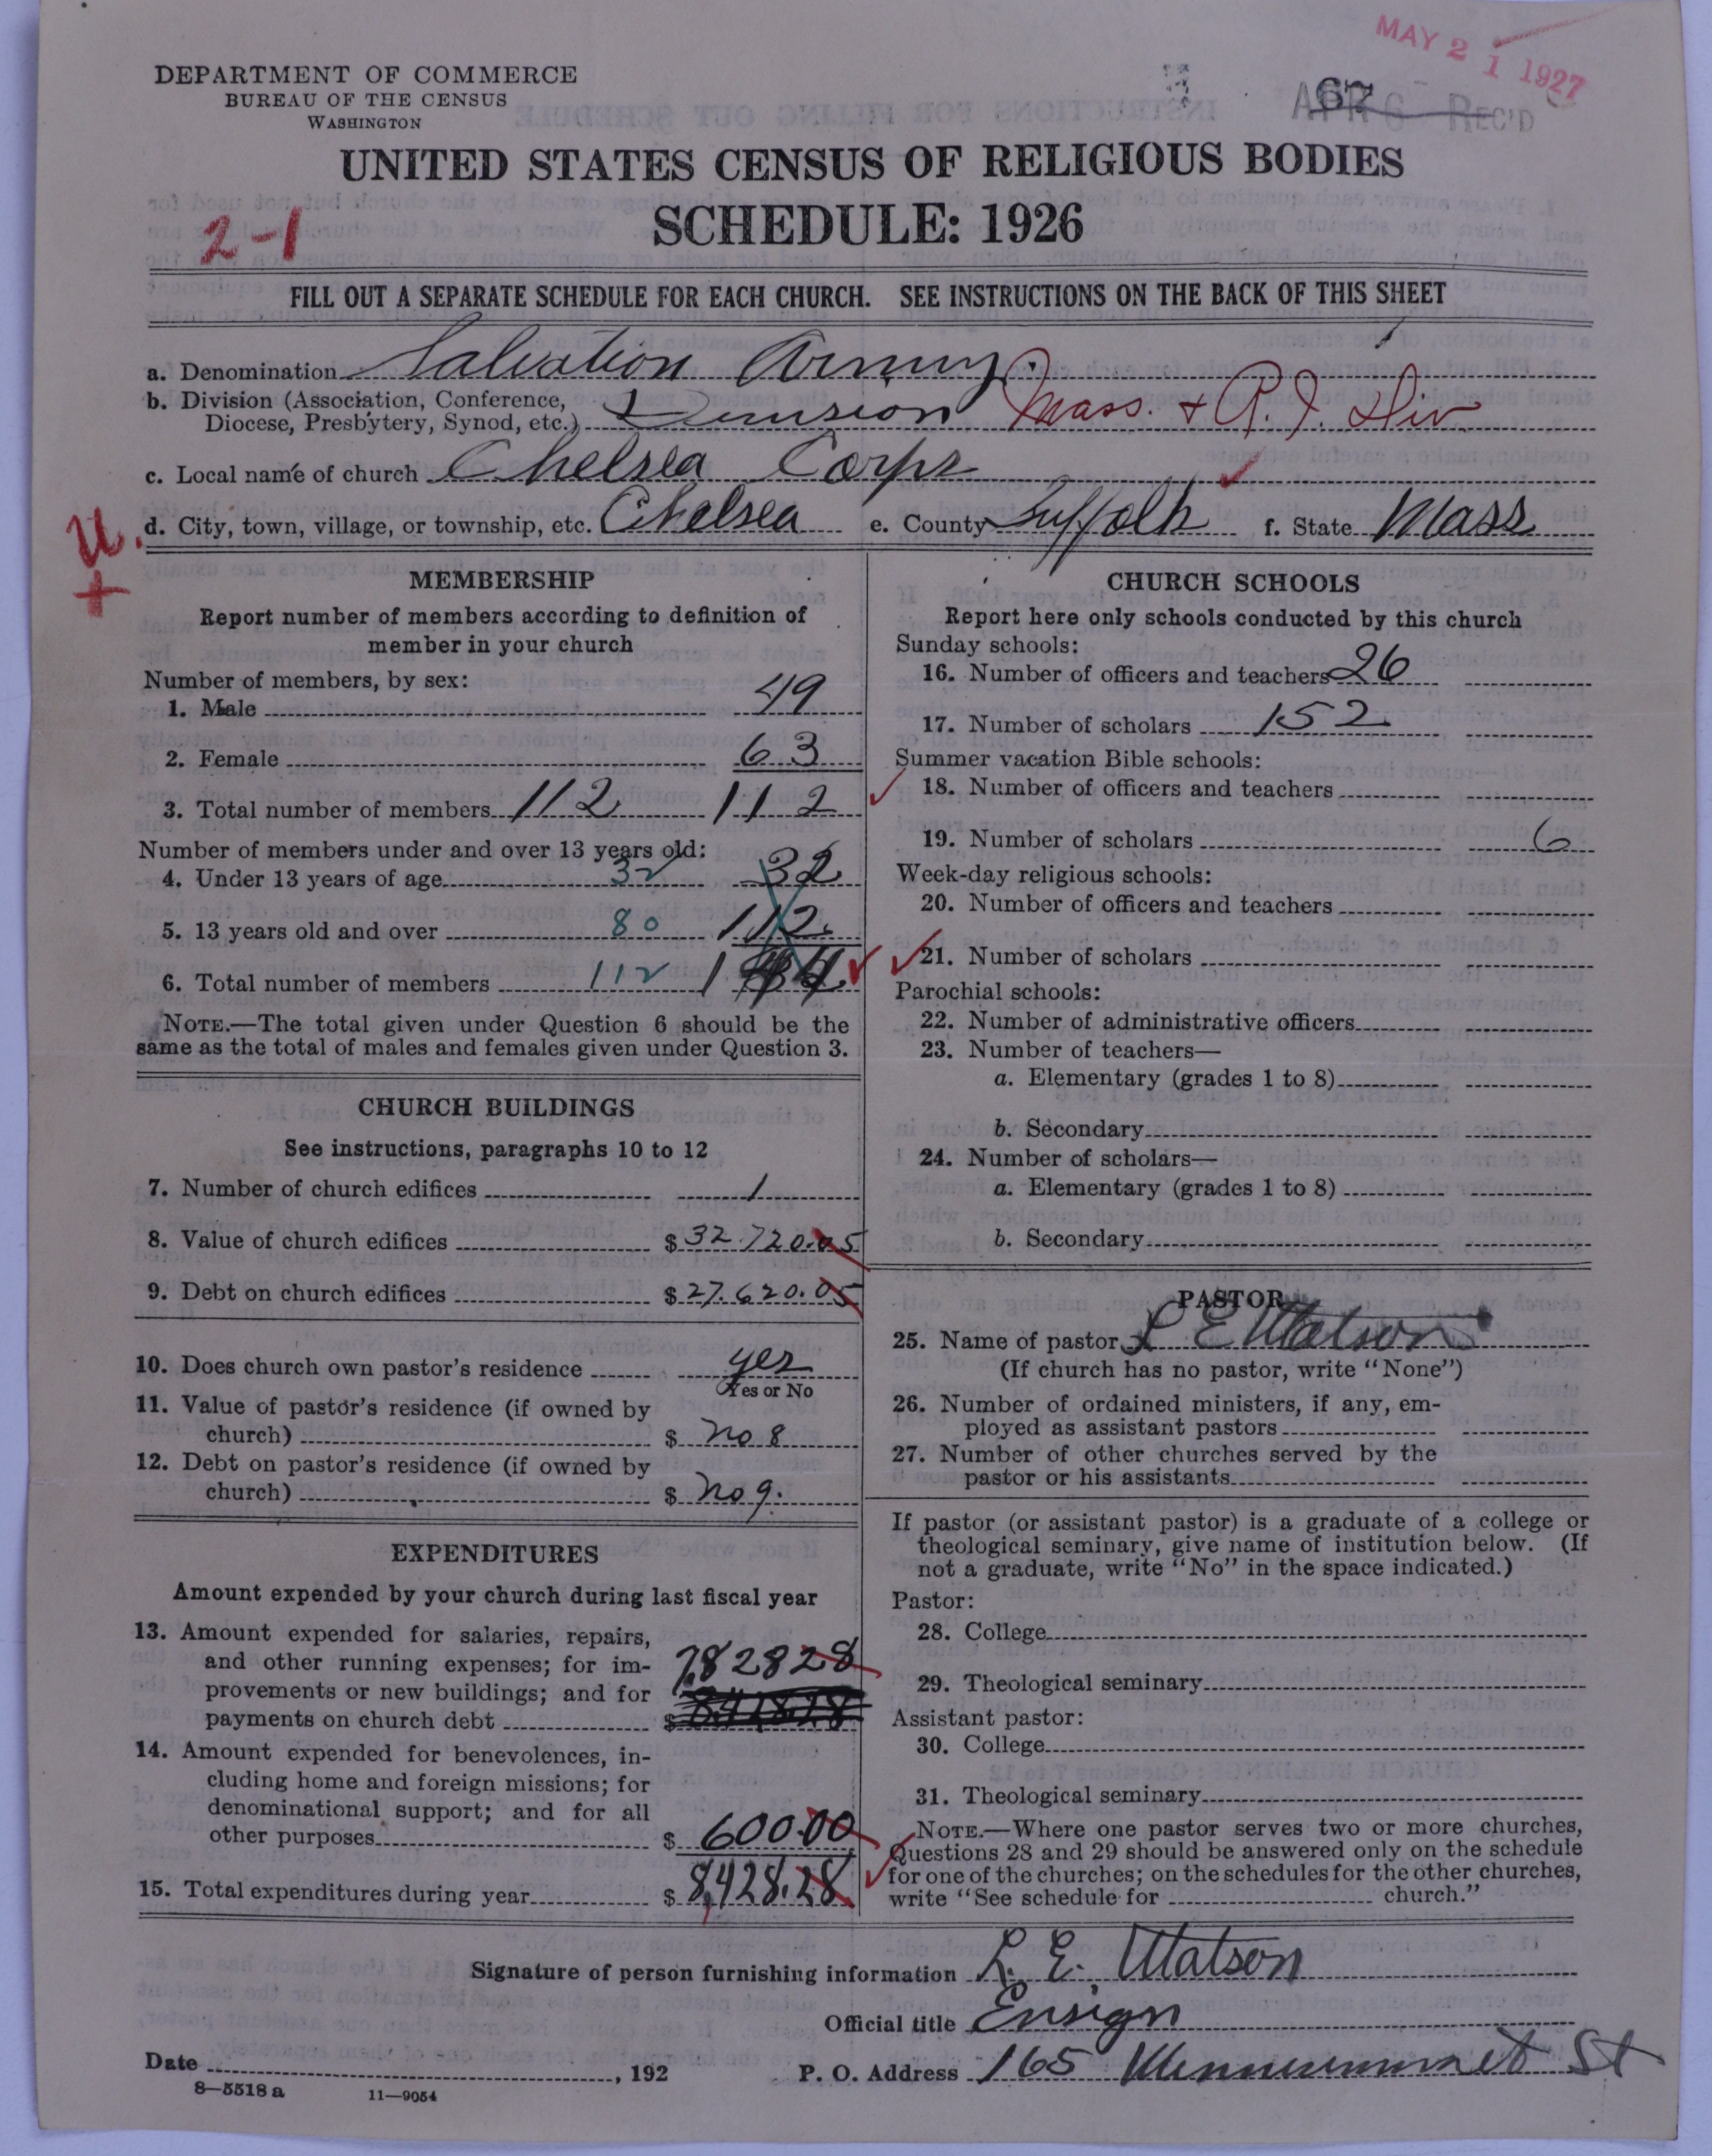 MAY 21 1927
DEPARTMENT OF COMMERCE
BUREAU OF THE CENSUS
WASHINGTON
67
APR 6 REC'D
UNITED STATES CENSUS OF RELIGIOUS BODIES
SCHEDULE: 1926
2-1
FILL OUT A SEPARATE SCHEDULE FOR EACH CHURCH. SEE INSTRUCTIONS ON THE BACK OF THIS SHEET
a. Denomination Salvation Army.
b. Division (Association, Conference,
Diocese, Presbytery, Synod, etc.) Division Mass. + R.I. Div
c. Local name of church Chelsea Corps
U. +
d. City, town, village, or township, etc. Chelsea e. County Suffolk f. State Mass
MEMBERSHIP
Report number of members according to definition of
member in your church
Number of members, by sex:
1. Male 49
2. Female 63
3. Total number of members 112 112
Number of members under and over 13 years old:
4. Under 13 years of age 32 32
5. 13 years old and over 80 112
6. Total number of members 112
NOTE.—The total given under Question 6 should be the
same as the total of males and females given under Question 3.
CHURCH BUILDINGS
See instructions, paragraphs 10 to 12
7. Number of church edifices 1
8. Value of church edifices $ 32.720.05
9. Debt on church edifices $ 27.620.05
10. Does church own pastor's residence yes
Yes or No
11. Value of pastor's residence (if owned by
church) $ no 8
12. Debt on pastor's residence (if owned by
church) $ no 9.
EXPENDITURES
Amount expended by your church during last fiscal year
13. Amount expended for salaries, repairs,
and other running expenses; for im-
provements or new buildings; and for
payments on church debt $ 7,82828
8.428.28
14. Amount expended for benevolences, in-
cluding home and foreign missions; for
denominational support; and for all
other purposes $ 600.00
15. Total expenditures during year $ 8,428.28
CHURCH SCHOOLS
Report here only schools conducted by this church
Sunday schools:
16. Number of officers and teachers 26
17. Number of scholars 152
Summer vacation Bible schools:
18. Number of officers and teachers
19. Number of scholars 6
Week-day religious schools:
20. Number of officers and teachers
21. Number of scholars
Parochial schools:
22. Number of administrative officers
23. Number of teachers—
a. Elementary (grades 1 to 8)
b. Secondary
24. Number of scholars—
a. Elementary (grades 1 to 8)
b. Secondary
PASTOR
25. Name of pastor L E Watson
(If church has no pastor, write "None")
26. Number of ordained ministers, if any, em-
ployed as assistant pastors
27. Number of other churches served by the
pastor or his assistants
If pastor (or assistant pastor) is a graduate of a college or
theological seminary, give name of institution below. (If
not a graduate, write "No" in the space indicated.)
Pastor:
28. College
29. Theological seminary
Assistant pastor:
30. College
31. Theological seminary
NOTE.—Where one pastor serves two or more churches,
Questions 28 and 29 should be answered only on the schedule
for one of the churches; on the schedules for the other churches,
write "See schedule for church."
Signature of person furnishing information L. E. Watson
Official title Ensign
Date , 192 P. O. Address 165 St
8—5518 a 11—9054